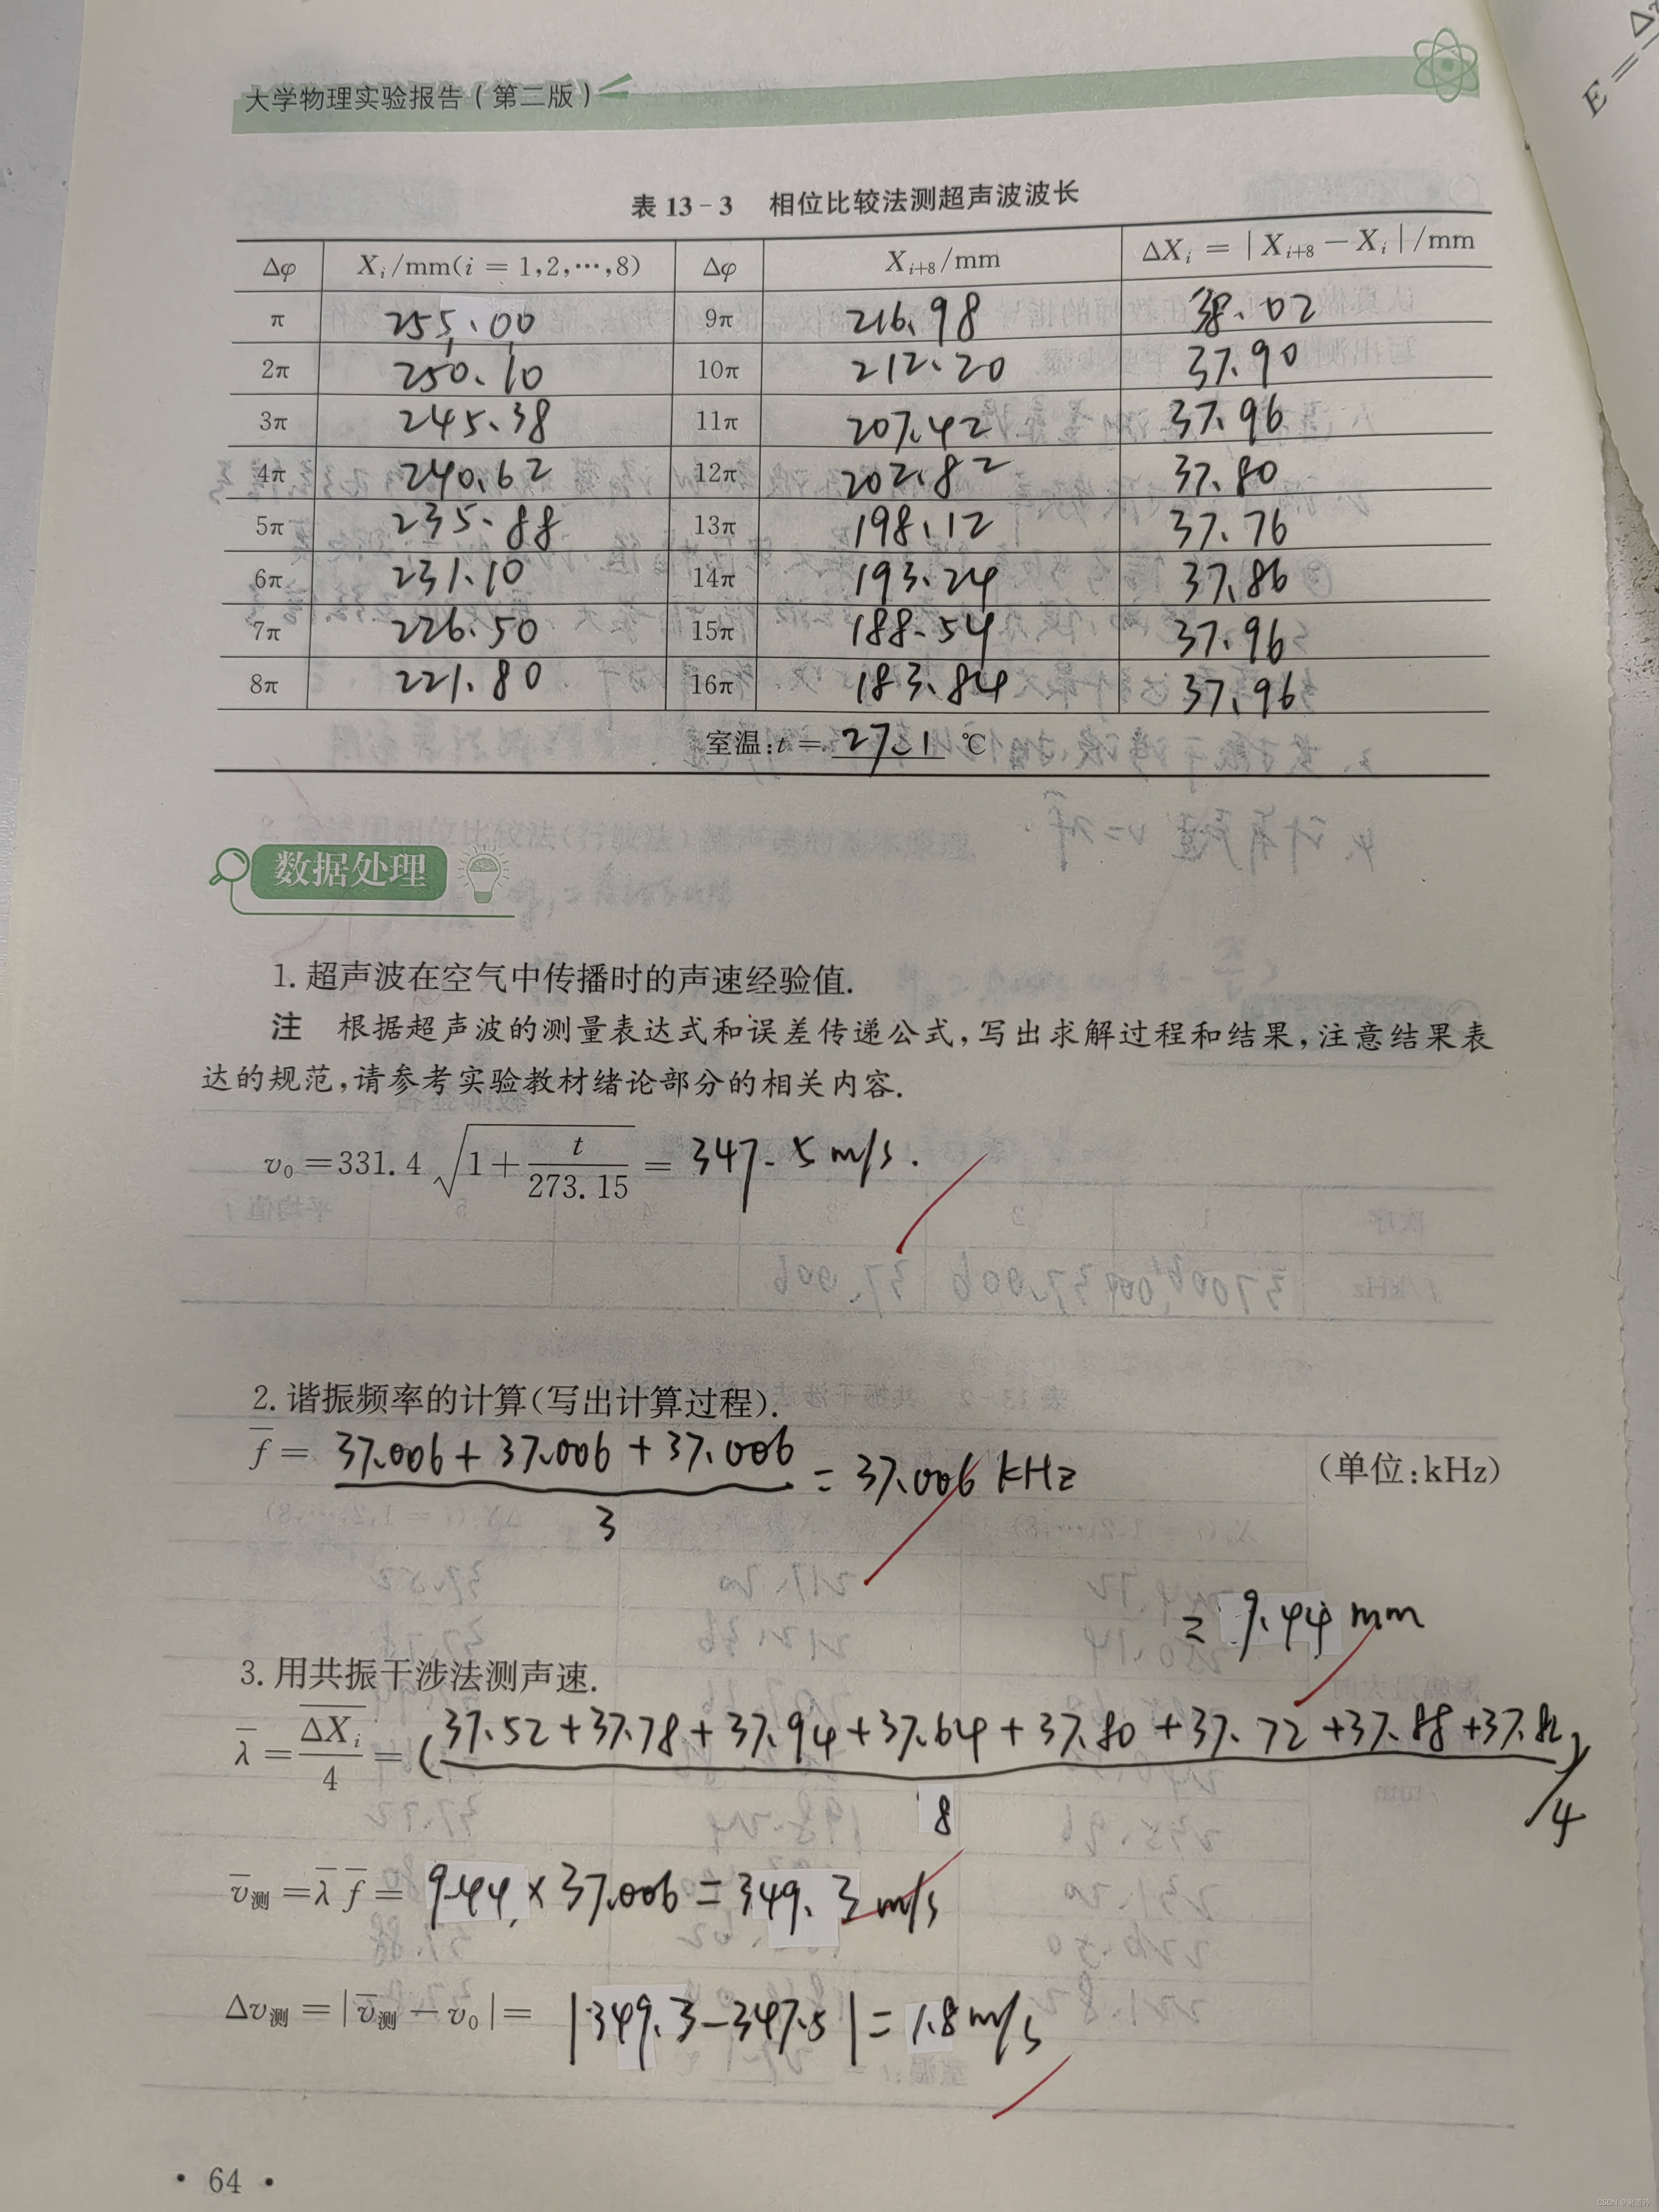 大学物理实验报告(第二版)
E=Δ
表 13-3 相位比较法测超声波波长
Δφ Xᵢ/mm(i = 1,2,…,8) Δφ Xᵢ₊₈/mm ΔXᵢ = |Xᵢ₊₈ − Xᵢ|/mm
π 255.00 9π 216.98 38.02
2π 250.10 10π 212.20 37.90
3π 245.38 11π 207.42 37.96
4π 240.62 12π 202.82 37.80
5π 235.88 13π 198.12 37.76
6π 231.10 14π 193.24 37.86
7π 226.50 15π 188.54 37.96
8π 221.80 16π 183.84 37.96
室温:t = 27.1 ℃
数据处理
1. 超声波在空气中传播时的声速经验值.
注 根据超声波的测量表达式和误差传递公式,写出求解过程和结果,注意结果表
达的规范,请参考实验教材绪论部分的相关内容.
v₀ = 331.4 √(1 + t/273.15) = 347.5 m/s.
2. 谐振频率的计算(写出计算过程).
f̄ = (37.006 + 37.006 + 37.006)/3 = 37.006 kHz (单位:kHz)
= 9.44 mm
3. 用共振干涉法测声速.
λ̄ = ΔXᵢ/4 = (37.52+37.78+37.94+37.64+37.80+37.72+37.88+37.82)/8/4
v̄测 = λ̄ f̄ = 9.44 × 37.006 = 349.3 m/s
Δv测 = |v̄测 − v₀| = |349.3−347.5| = 1.8 m/s
· 64 ·